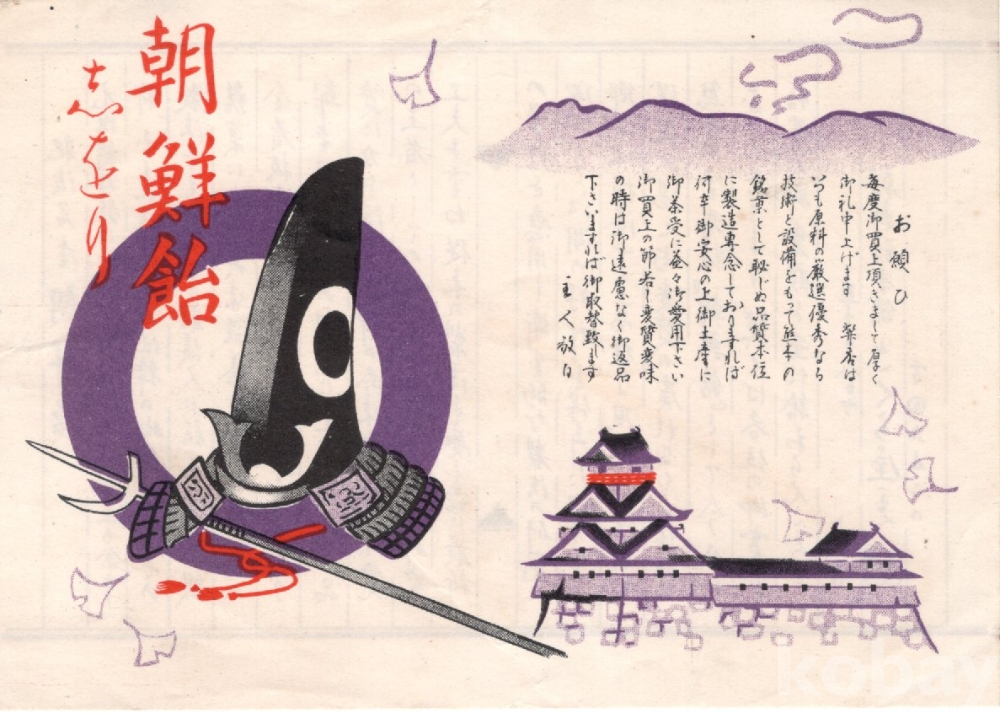 朝鮮飴
志をり
お願ひ
毎度御買上頂きまして厚く
御礼申上げます 弊店は
いつも原料の厳選優秀なる
技術と設備をもって熊本の
銘菓として恥ぢぬ品質本位
に製造専念しておりますれば
何卒御安心の上御土産に
御茶受に益々御愛用下さい
御買上の節若し変質変味
の時は御遠慮なく御返品
下さいますれば御取替致します
主人敬白
kobay